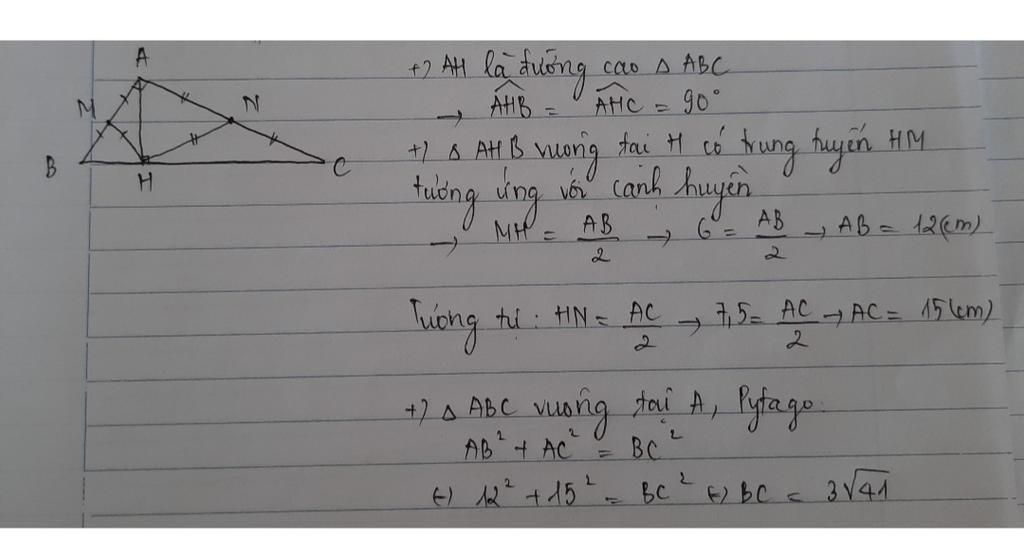 A
M
N
B
H
C
+) AH là đường cao Δ ABC
→ AHB = AHC = 90°
+) Δ AHB vuông tại H có trung tuyến HM
tương ứng với cạnh huyền
→ MH = AB/2 → 6 = AB/2 → AB = 12(cm)
Tương tự : HN = AC/2 → 7,5 = AC/2 → AC = 15(cm)
+) Δ ABC vuông tại A, Pytago:
AB² + AC² = BC²
(-) 12² + 15² = BC² (-) BC = 3√41